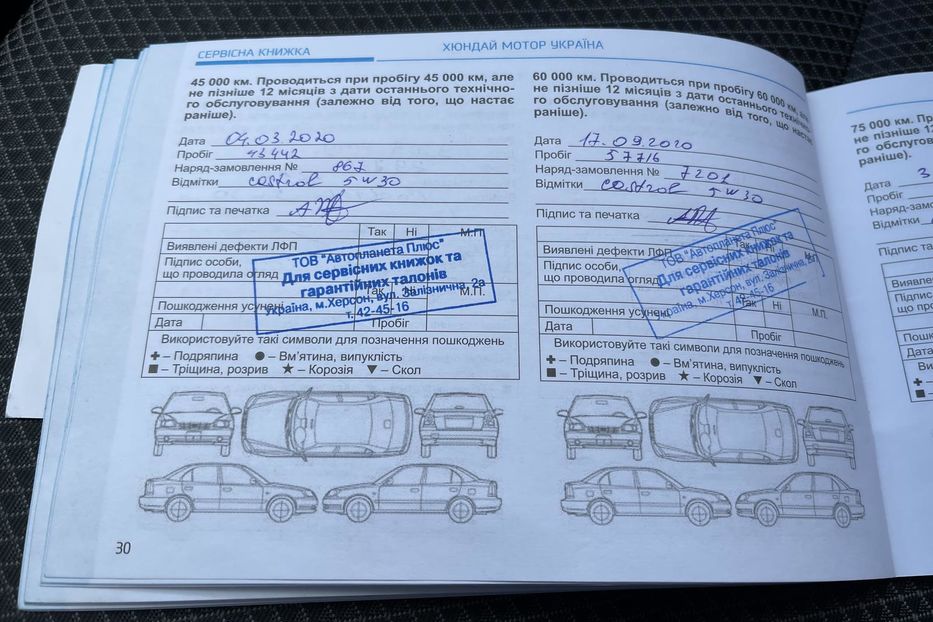 СЕРВІСНА КНИЖКА
ХЮНДАЙ МОТОР УКРАЇНА
45 000 км. Проводиться при пробігу 45 000 км, але
не пізніше 12 місяців з дати останнього технічно-
го обслуговування (залежно від того, що настає
раніше).
Дата 04.03.2020
Пробіг 43442
Наряд-замовлення № 867
Відмітки castrol 5w30
Підпис та печатка
Так Ні М.П.
Виявлені дефекти ЛФП
Підпис особи,
що проводила огляд
Так Ні М.П.
Пошкодження усунені
Дата Пробіг
ТОВ "Автопланета Плюс"
Для сервісних книжок та
гарантійних талонів
Україна, м.Херсон, вул. Залізнична, 2а
т. 42-45-16
Використовуйте такі символи для позначення пошкоджень
– Подряпина – Вм'ятина, випуклість
– Тріщина, розрив – Корозія – Скол
60 000 км. Проводиться при пробігу 60 000 км, але
не пізніше 12 місяців з дати останнього технічно-
го обслуговування (залежно від того, що настає
раніше).
Дата 17.09.2020
Пробіг 57716
Наряд-замовлення № 7201
Відмітки castrol 5w30
Підпис та печатка
Виявлені дефекти ЛФП
Підпис особи,
що проводила огляд
Так Ні М.П.
Пошкодження усунені
Дата Пробіг
ТОВ "Автопланета Плюс"
Для сервісних книжок та
гарантійних талонів
Україна, м.Херсон, вул. Залізнична,
т. 42-45-16
Використовуйте такі символи для позначення пошкоджень
– Подряпина – Вм'ятина, випуклість
– Тріщина, розрив – Корозія – Скол
30
75 000 км. Пр
не пізніше 12
го обслугов
раніше).
Дата 3
Пробіг
Наряд-замо
Відмітки
Підпис та
Виявле
Підпис
що про
Пошко
Дата
Ви